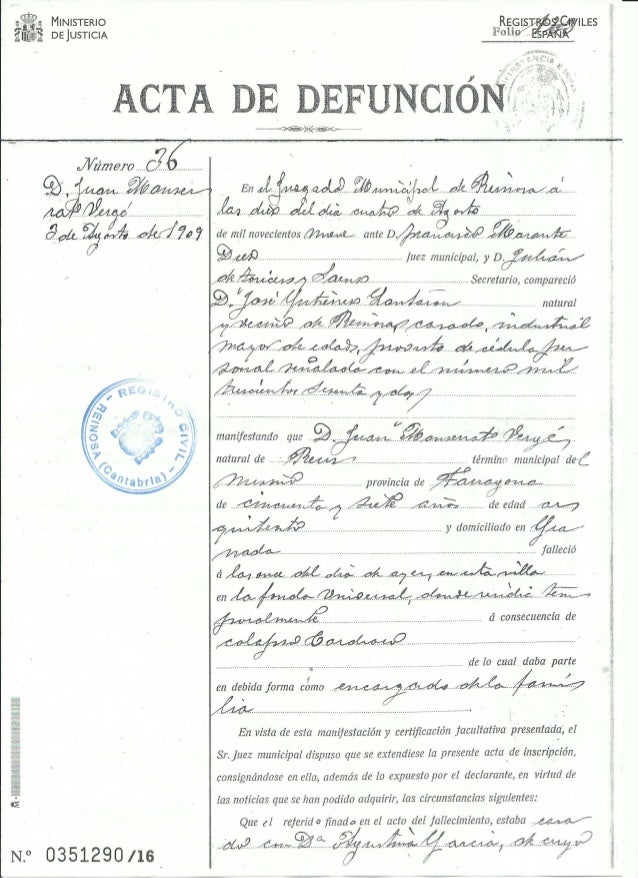 MINISTERIO
DE JUSTICIA
REGISTROS CIVILES
ESPAÑA
Folio
ACTA DE DEFUNCIÓN
Número 36
D. Juan Monser
rat Vergé
3 de Agosto de 1909
REGISTRO CIVIL - REINOSA (Cantabria) -
En el Juzgado Municipal de Reinosa á
las diez del dia cuatro de Agosto
de mil novecientos nueve ante D. Francisco Morante
Diez Juez municipal, y D. Julián
de Saenz Secretario, compareció
D. José Gutierrez Lantaron natural
y vecino de Reinosa, casado, industrial
mayor de edad, provisto de cédula per
sonal señalada con el número mil
trescientos sesenta y dos
manifestando que D. Juan Monserrat Vergé
natural de Reus término municipal del
mismo provincia de Tarragona
de cincuenta y siete años de edad ar
quitecto y domiciliado en Gra
nada falleció
á las once del dia de ayer, en esta villa
en la fonda Universal, donde residia tem
poralmente á consecuencia de
colapso Cardiaco
de lo cual daba parte
en debida forma como encargado de la fami
lia
En vista de esta manifestación y certificación facultativa presentada, el
Sr. Juez municipal dispuso que se extendiese la presente acta de inscripción,
consignándose en ella, además de lo expuesto por el declarante, en virtud de
las noticias que se han podido adquirir, las circunstancias siguientes:
Que el referido finado en el acto del fallecimiento, estaba casa
do con Dª Agustina Garcia, de cuyo
N.º 0351290/16